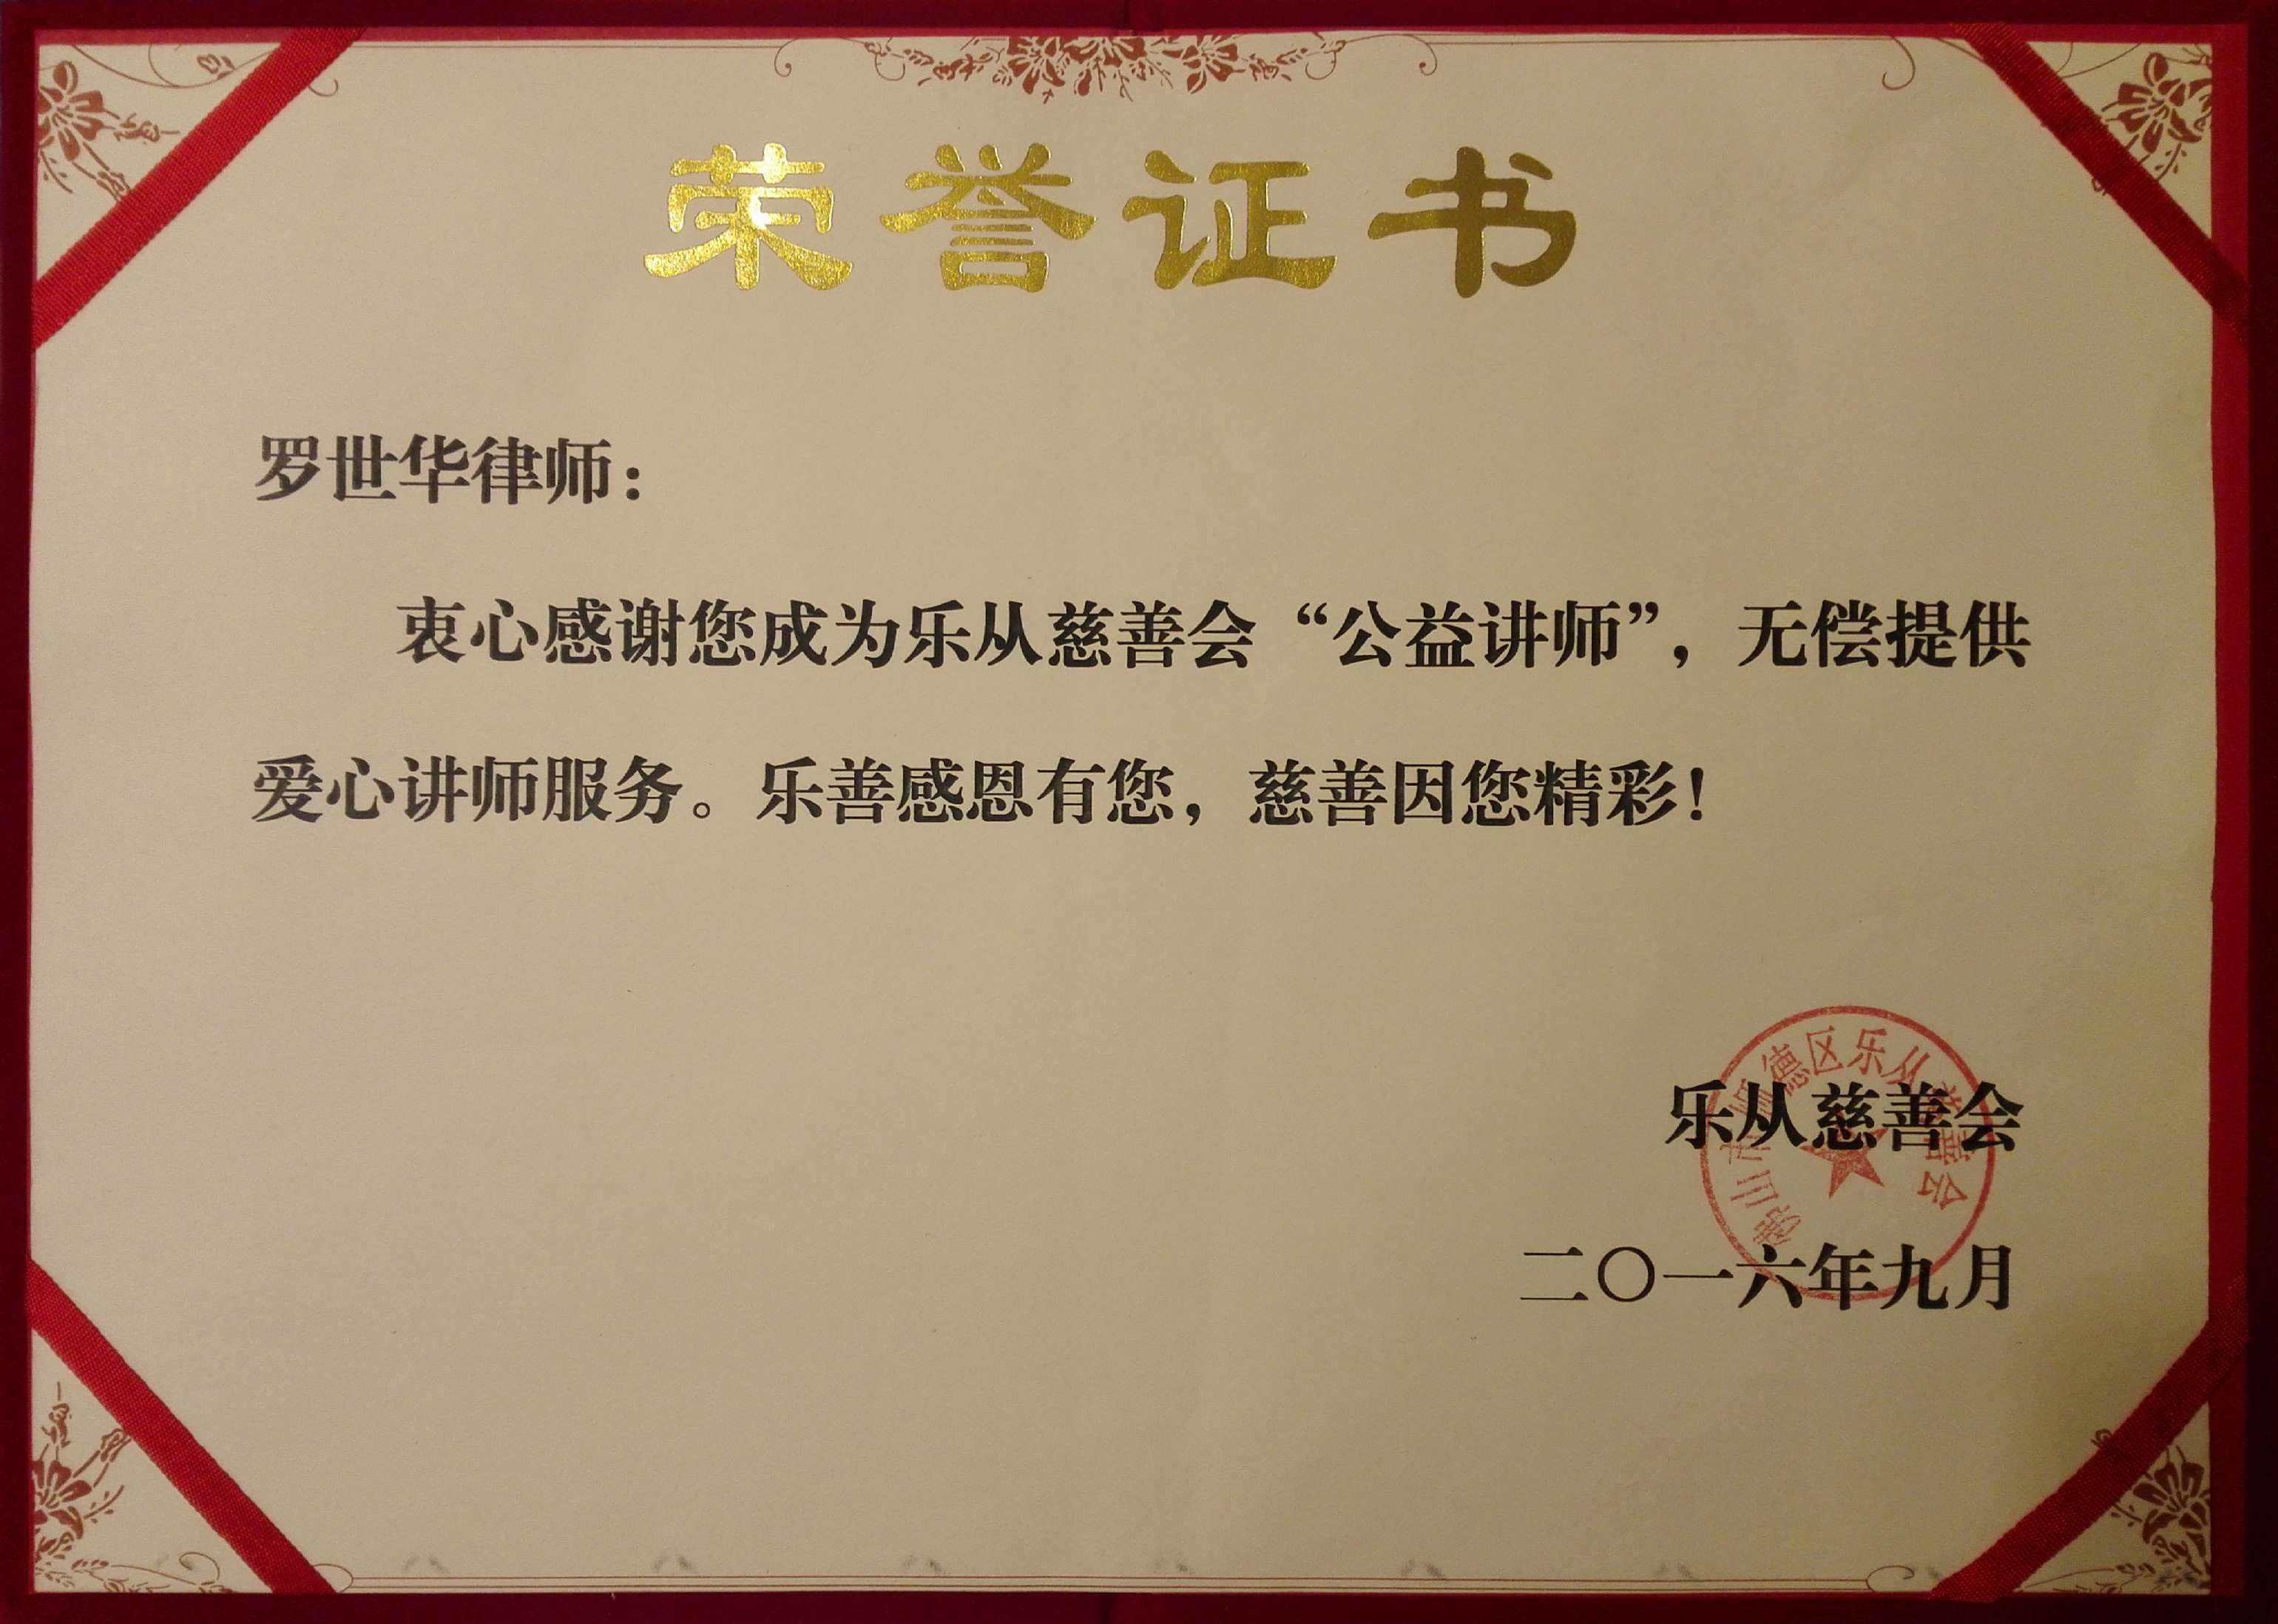 荣誉证书
罗世华律师：
衷心感谢您成为乐从慈善会“公益讲师”，无偿提供
爱心讲师服务。乐善感恩有您，慈善因您精彩！
佛山市顺德区乐从慈善会
乐从慈善会
二〇一六年九月